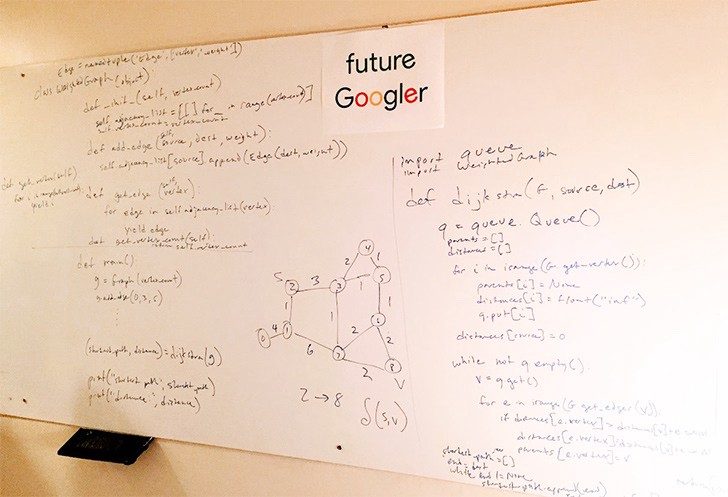 future
Googler
Edge = namedtuple('Edge', ['vertex', 'weight'])
class WeightedGraph(object):
def __init__(self, vertex_count)
self.adjacency_list = [[] for _ in range(vertex_count)]
self.vertex_count = vertex_count
def add_edge(self, source, dest, weight):
self.adjacency_list[source].append(Edge(dest, weight))
def get_vertex(self)
yield i
def get_edge(self, vertex):
for edge in self.adjacency_list(vertex)
yield edge
def get_vertex_count(self):
return self.vertex_count
def main()
g = Graph(vertex_count)
(shortest_path, distance) = dijkstra(g)
print("shortest path", shortest_path)
print("distance", distance)
S
2
3
3
2
4
1
5
1
1
1
1
0
4
1
6
7
2
2
2
8
V
2 → 8
δ(s,v)
import queue
import WeightedGraph
def dijkstra(G, source, dest)
q = queue.Queue()
parents = []
distances = []
for i in irange(G.get_vertex()):
parents[i] = None
distances[i] = float("inf")
q.put[i]
distances[source] = 0
while not q.empty().
v = q.get()
for e in irange(G.get_edges(v)):
if distances[e.vertex] > distances[v] +
distances[e.vertex]
parents[e.vertex] = v
shortest_path = []
end = dest
while end != None
shortest_path.append(end)